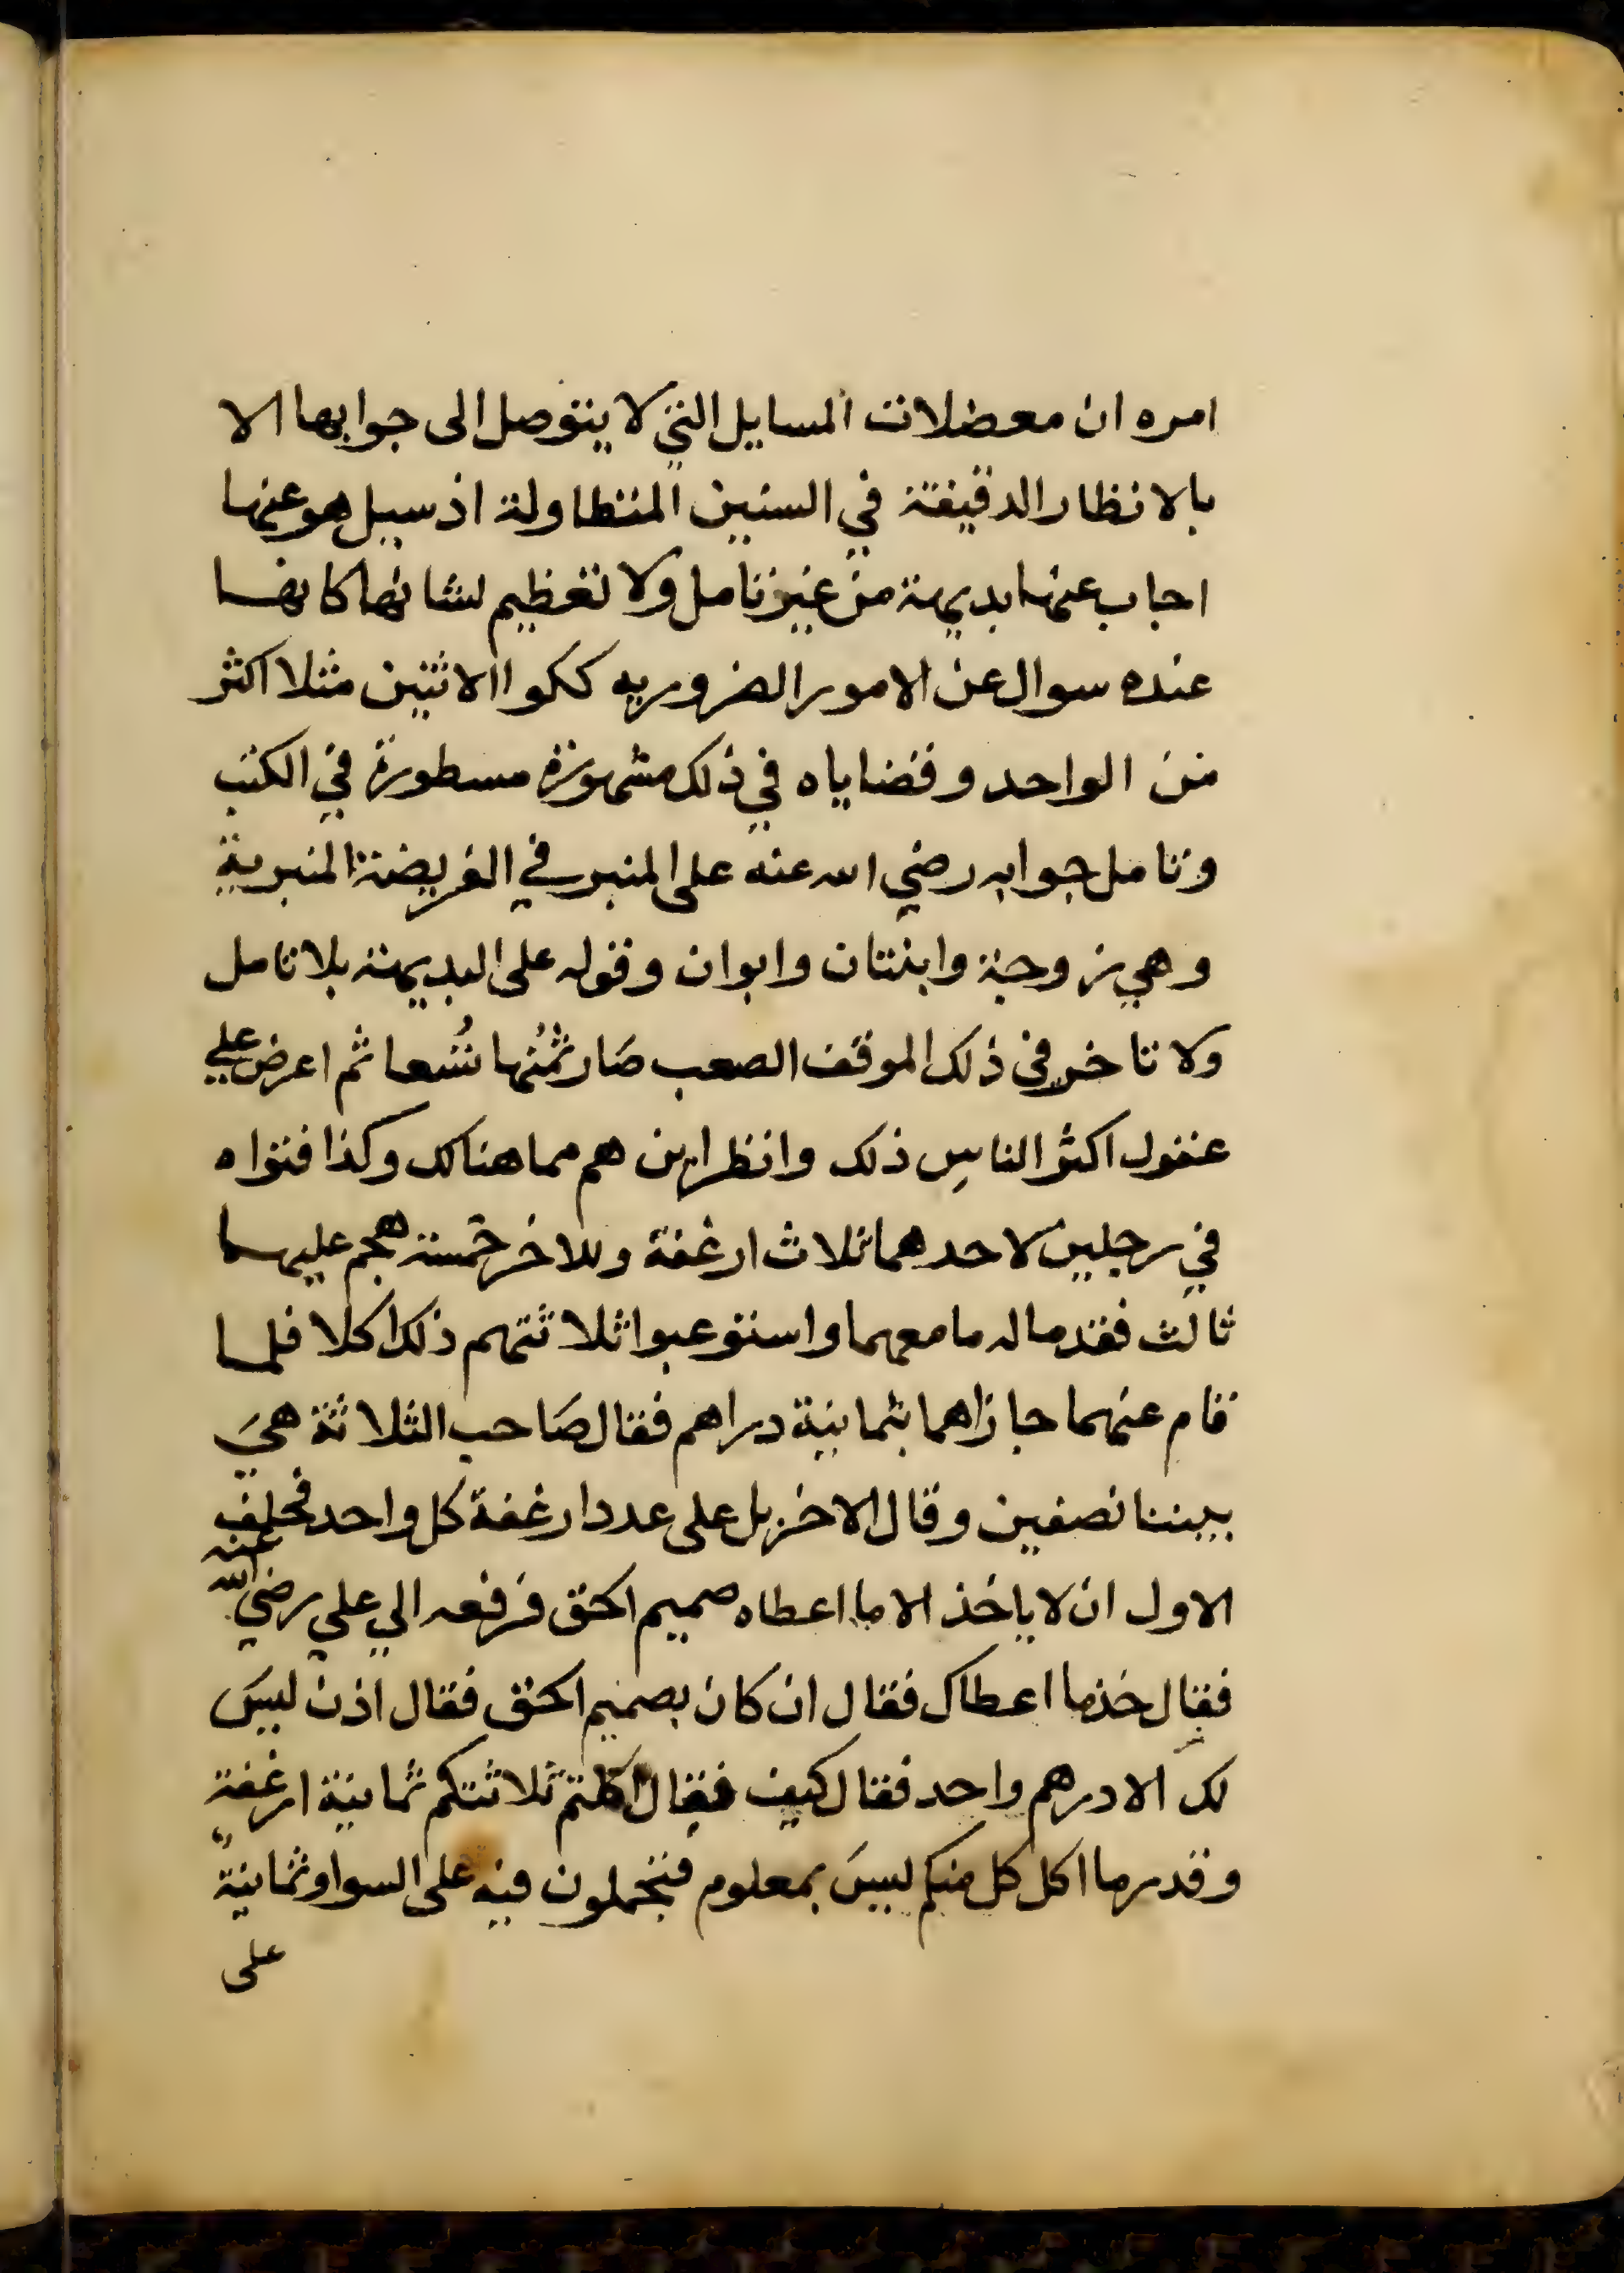 امره ان معضلات المسايل التي لا يتوصل الى جوابها الا
بالانظار الدقيقة في السنين المتطاولة اذ سيل هو عنها
اجاب عنها بديهة من غير تامل ولا تعظيم لشانها كانها
عنده سوال عن الامور الضروريه ككوا الاثنين مثلا اكثر
من الواحد وقضاياه في ذلك مشهورة مسطورة في الكتب
وتامل جوابه رضي الله عنه على المنبر في الفريضة المنبرية
وهي زوجة وابنتان وابوان وقوله على البديهة بلا تامل
ولا تاخر في ذلك الموقف الصعب صَار ثُمُنُها تُسُعا ثم اعرض على
عقول اكثر الناسِ ذلك وانظر اين هم مما هنالك وكذا فتواه
في رجلين لاحدهما ثلاث ارغفة وللاخر خمسة هجم عليهما
ثالث فقدما له ما معهما واستوعبوا ثلاثتهم ذلك اكلا فلما
قام عنهما جازاهما بثمانية دراهم فقال صَاحب الثلاثة هيَ
بيننا نصفين وقال الاخر بل على عدد ارغفة كل واحد فحلف
الاول ان لا ياخذ الا ما اعطاه صميم الحق فرفعه الي علي رضي الله عنه
فقال خذ ما اعطاك فقال ان كان بصميم الحق فقال اذن ليسَ
لك الا درهم واحد فقال كيف فقال اكلتم ثلاثتكم ثمانية ارغفة
وقدر ما اكل كل منكم ليسَ بمعلوم فتحملون فيه على السوا وثمانيةً
على